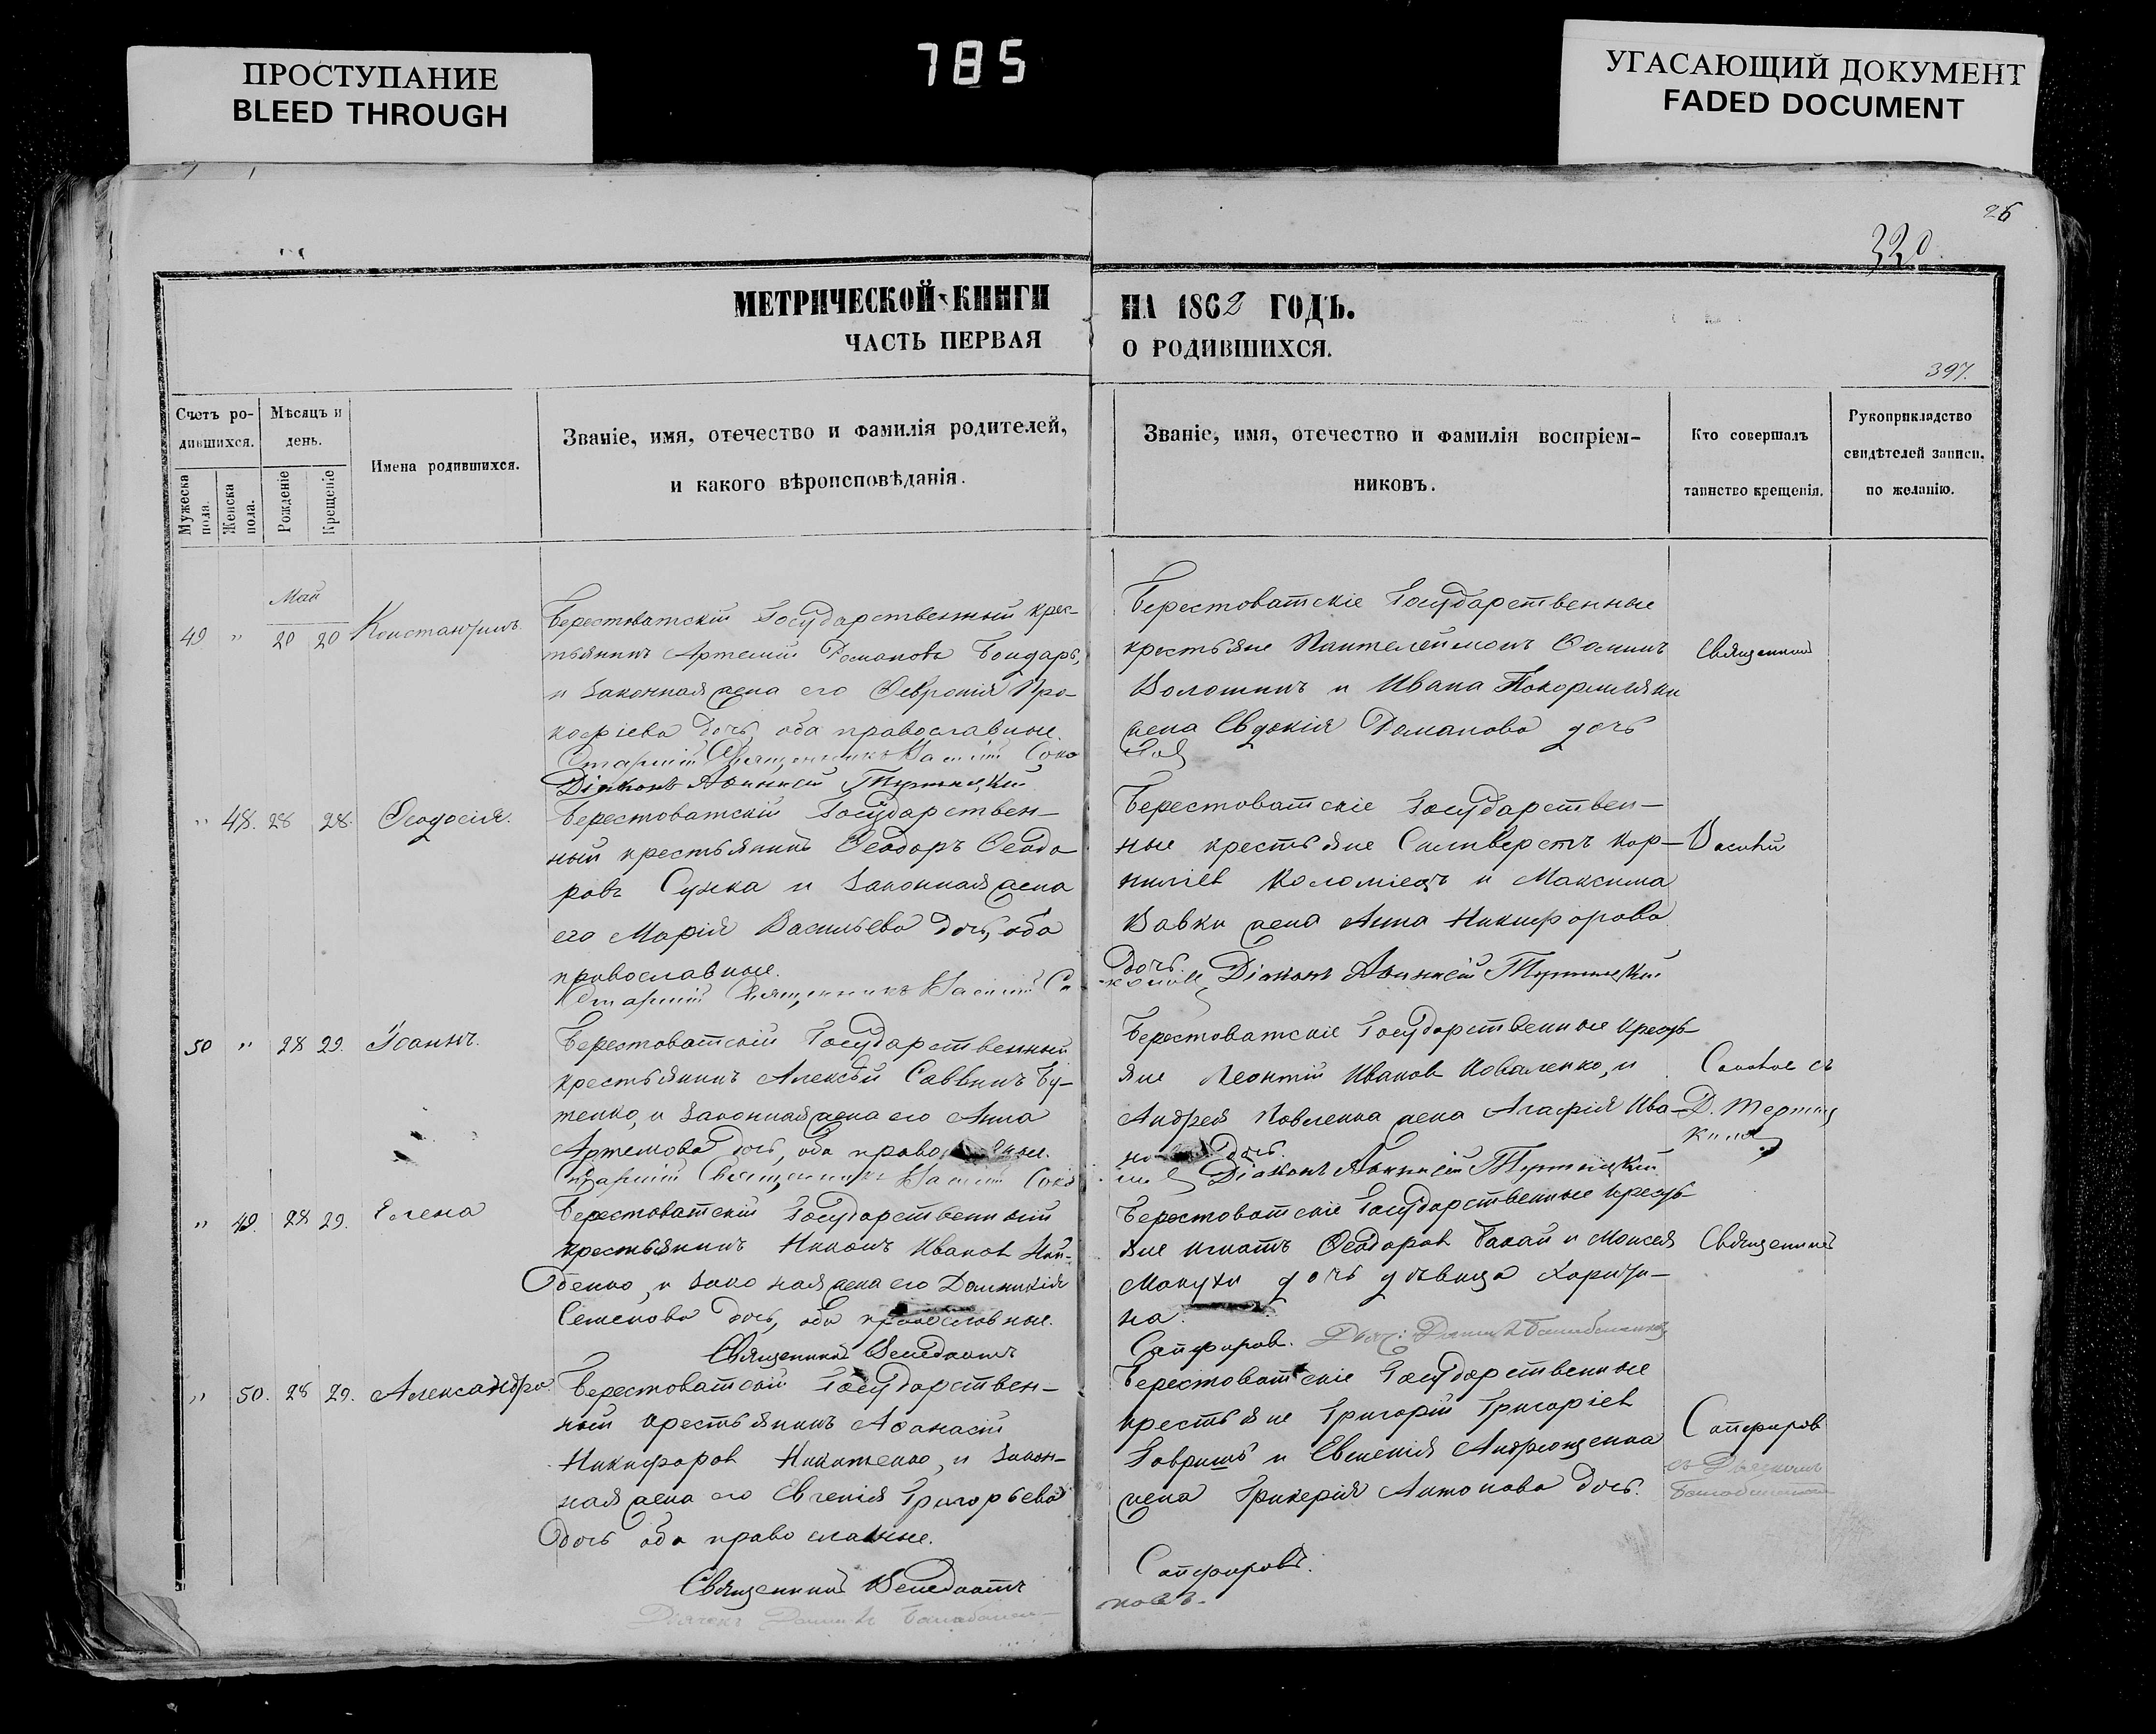 ПРОСТУПАНИЕ
BLEED THROUGH
785
УГАСАЮЩИЙ ДОКУМЕНТ
FADED DOCUMENT
26
320
МЕТРИЧЕСКОЙ КНИГИ
ЧАСТЬ ПЕРВАЯ
НА 1862 ГОДЪ.
О РОДИВШИХСЯ.
397.
Счетъ ро-
дившихся.
Мѣсяцъ и
день.
Мужеска
пола.
Женска
пола.
Рожденіе
Крещеніе
Имена родившихся.
Званіе, имя, отечество и фамилія родителей,
и какого вѣроисповѣданія.
Званіе, имя, отечество и фамилія воспріем-
никовъ.
Кто совершалъ
таинство крещенія.
Рукоприкладство
свидѣтелей записи
по желанію.
Май
49 " 20 20 Константинъ
Берестоватскій Государственный крес-
тьянинъ Артемій Романовъ Бондарь,
и законная жена его Февронія Про-
кофіева дочь, оба православные.
Старшій Священникъ
Діаконъ
Берестоватскіе Государственные
крестьяне Пантелеймонъ Фоминъ
Волошинъ и Ивана
жена Евдокія Романова дочь
Священникъ
" 48. 28 28. Феодосія.
Берестоватскій Государствен-
ный крестьянинъ Феодоръ Феодо
ровъ Сужка и законная жена
его Марія Васильева дочь, оба
православные.
Старшій Священникъ
Берестоватскіе Государствен-
ные крестьяне Сильверстъ Кор-
ниліев Коломіецъ и Максима
Вавки жена Анна Никифорова
дочь.
Діаконъ
Василій
50 " 28 29. Іоаннъ.
Берестоватскій Государственный
крестьянинъ Алексѣй Саввинъ Бу-
тенко, и законная жена его Анна
Артемова дочь, оба
Старшій Священникъ
Берестоватскіе Государственные кресть
яне Леонтій Иванов Коваленко, и
Андрея Павленка жена Агафія Ива-
дочь.
Діаконъ
" 49. 28 29. Елена
Берестоватскій Государственный
крестьянинъ Никонъ Иванов Най-
денко, и жена его Домникія
Семенова дочь, оба православные.
Священникъ Венедиктъ
Берестоватскіе Государственные кресть
яне Игнатъ Феодоров Бакай и Моисея
Макухи дочь дѣвица Харити-
на.
Сапфиров.
Священникъ
" 50. 28 29. Александра
Берестоватскій Государствен-
ный крестьянинъ Афанасій
Никифоров Никитенко, и закон-
ная жена его Евгенія Григорьева
дочь оба православные.
Священникъ Венедиктъ
Берестоватскіе Государственные
крестьяне Григорій Григоріев
Гавришъ и Евгенія Андрющенка
жена Гликерія Антонова дочь.
Сапфировъ.
Сапфиров